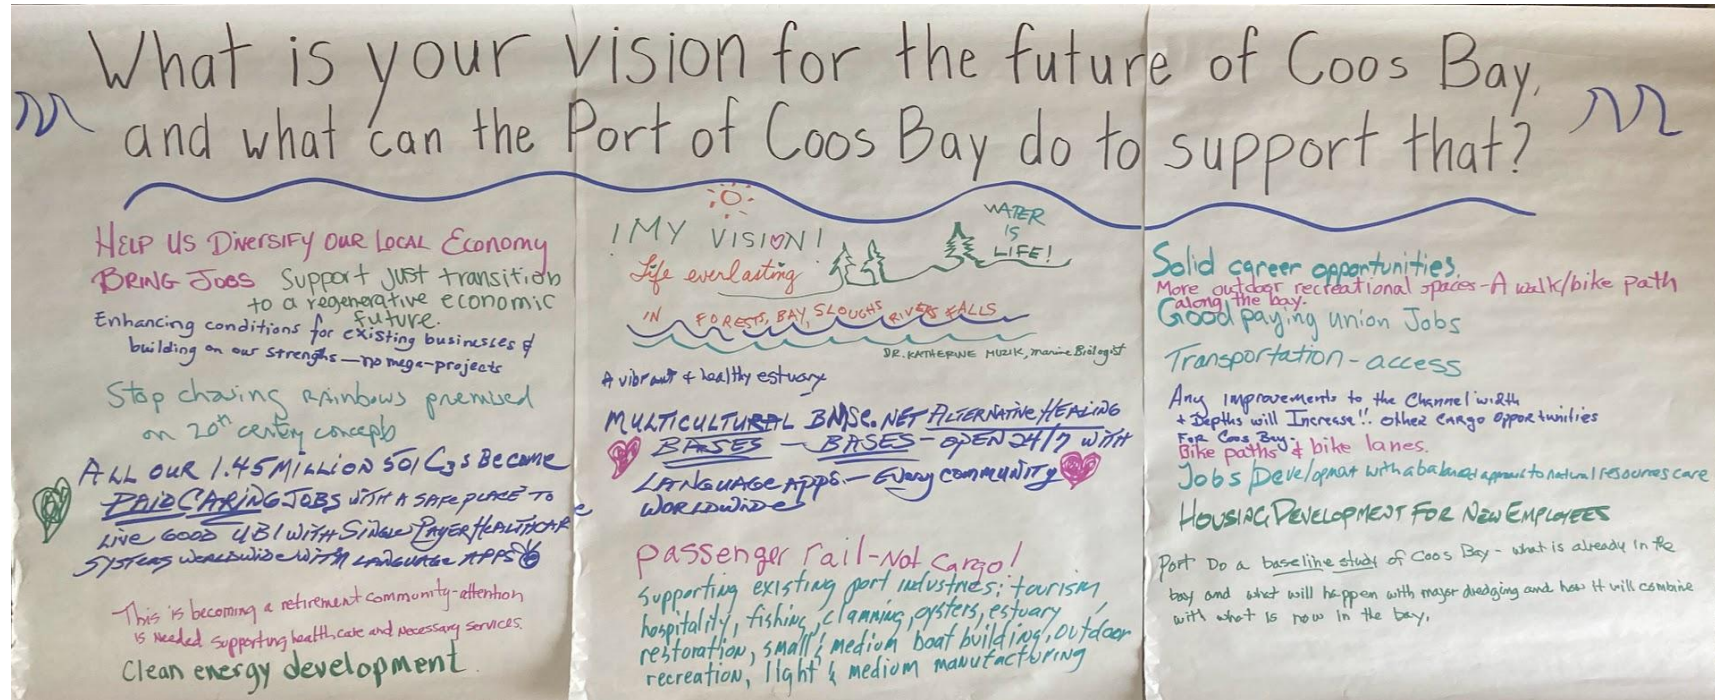 What is your vision for the future of Coos Bay,
and what can the Port of Coos Bay do to support that?
HELP US DIVERSIFY OUR LOCAL ECONOMY
BRING JOBS
Support just transition
to a regenerative economic
future.
Enhancing conditions for existing businesses &
building on our strengths — no mega-projects
Stop chasing rainbows premised
on 20th century concepts
ALL OUR 1.45 MILLION 501 C3s BECOME
PAID CARING JOBS WITH A SAFE PLACE TO
LIVE GOOD UBI WITH SINGLE PAYER HEALTHCARE
SYSTEMS WORLDWIDE WITH LANGUAGE APPS
This is becoming a retirement community - attention
is needed supporting health care and necessary services.
Clean energy development
! MY VISION!
WATER
IS
LIFE!
Life everlasting
IN FORESTS, BAY, SLOUGHS RIVERS FALLS
DR. KATHERINE MUZIK, marine Biologist
A vibrant & healthy estuary
MULTICULTURAL BNSC.NET ALTERNATIVE HEALING
BASES — BASES - OPEN 24/7 WITH
LANGUAGE APPS. — EVERY COMMUNITY
WORLDWIDE
Passenger rail - Not Cargo!
Supporting existing port industries: tourism
hospitality, fishing, clamming, oysters, estuary
restoration, small & medium boat building, outdoor
recreation, light & medium manufacturing
Solid career opportunities.
More outdoor recreational spaces - A walk/bike path
along the bay.
Good paying union Jobs
Transportation - access
Any improvements to the Channel width
+ Depths will Increase!! other cargo opportunities
For Coos Bay.
Bike paths & bike lanes.
Jobs/Development with a balanced approach to natural resources care
HOUSING DEVELOPMENT FOR NEW EMPLOYEES
Port Do a baseline study of Coos Bay - what is already in the
bay and what will happen with major dredging and how it will combine
with what is now in the bay.